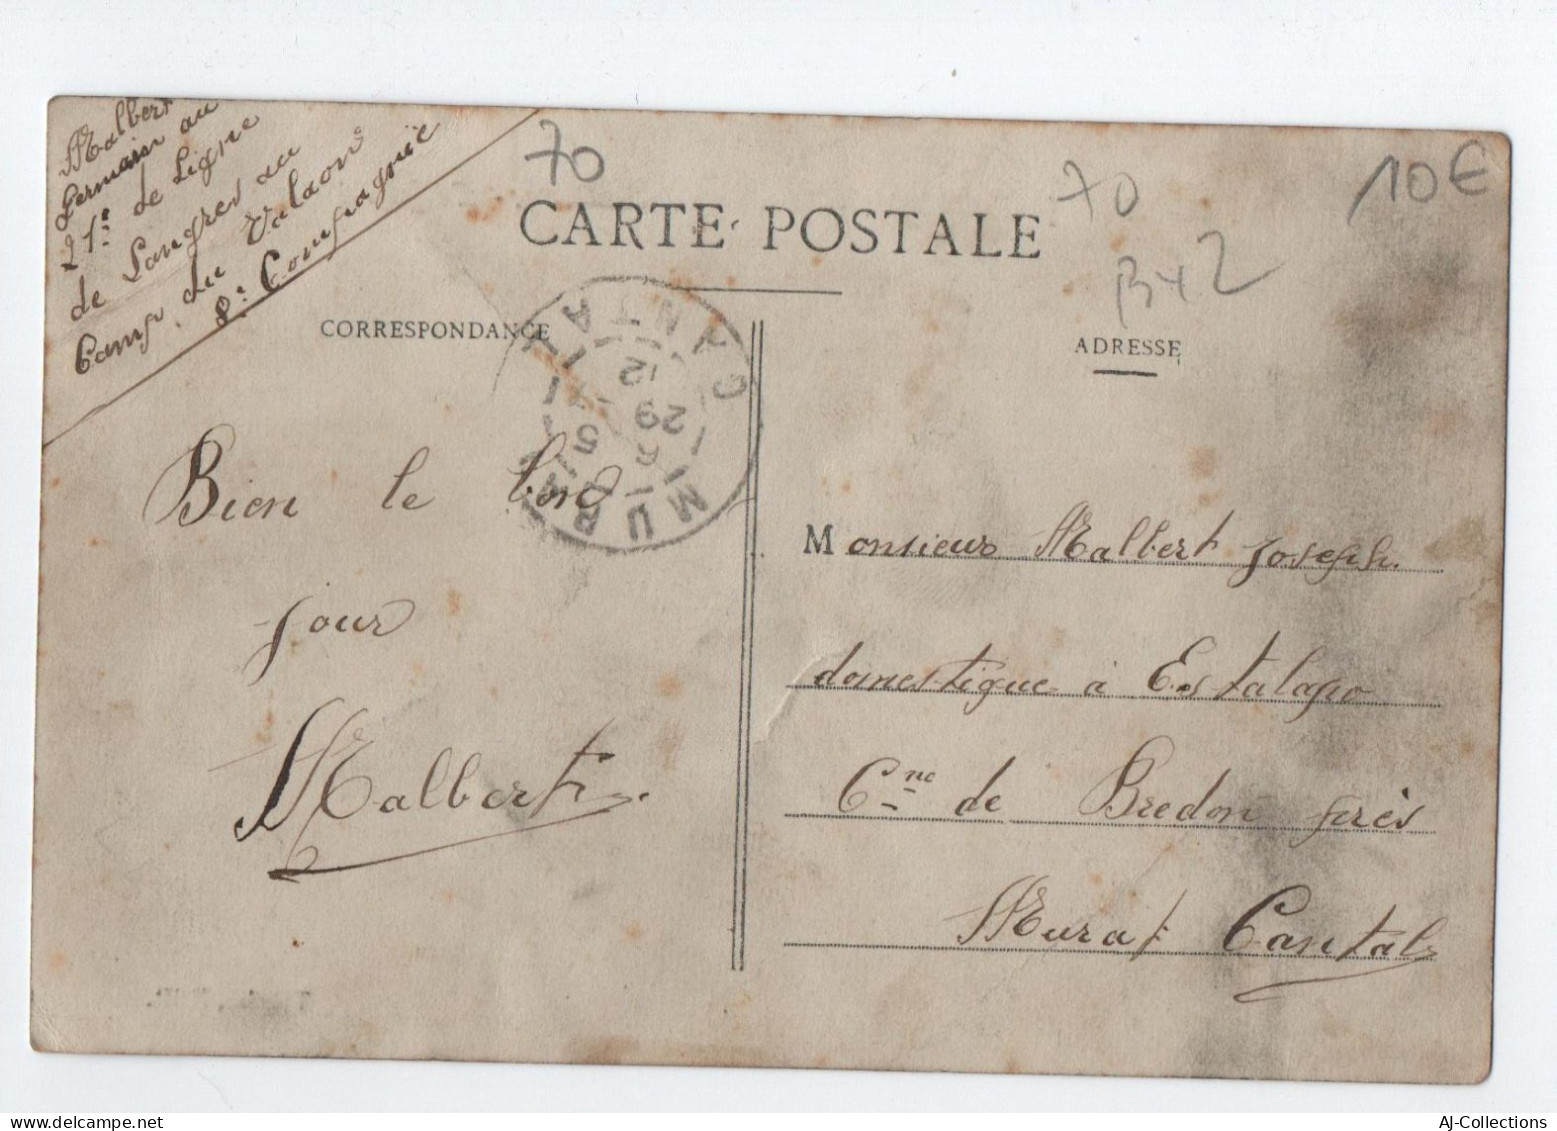 Malbert
Germain au
21e de Ligne
de Langres au
Camp du Valaon
8e Compagnie
70
70
10€
CARTE POSTALE
CORRESPONDANCE
ADRESSE
MURAT
CANTAL
12
29
5
Bien le bon
jour
Malbert
Monsieur Malbert Joseph.
domestique à Estalapo
Cne de Bredon près
Murat Cantal
AJ-Collections